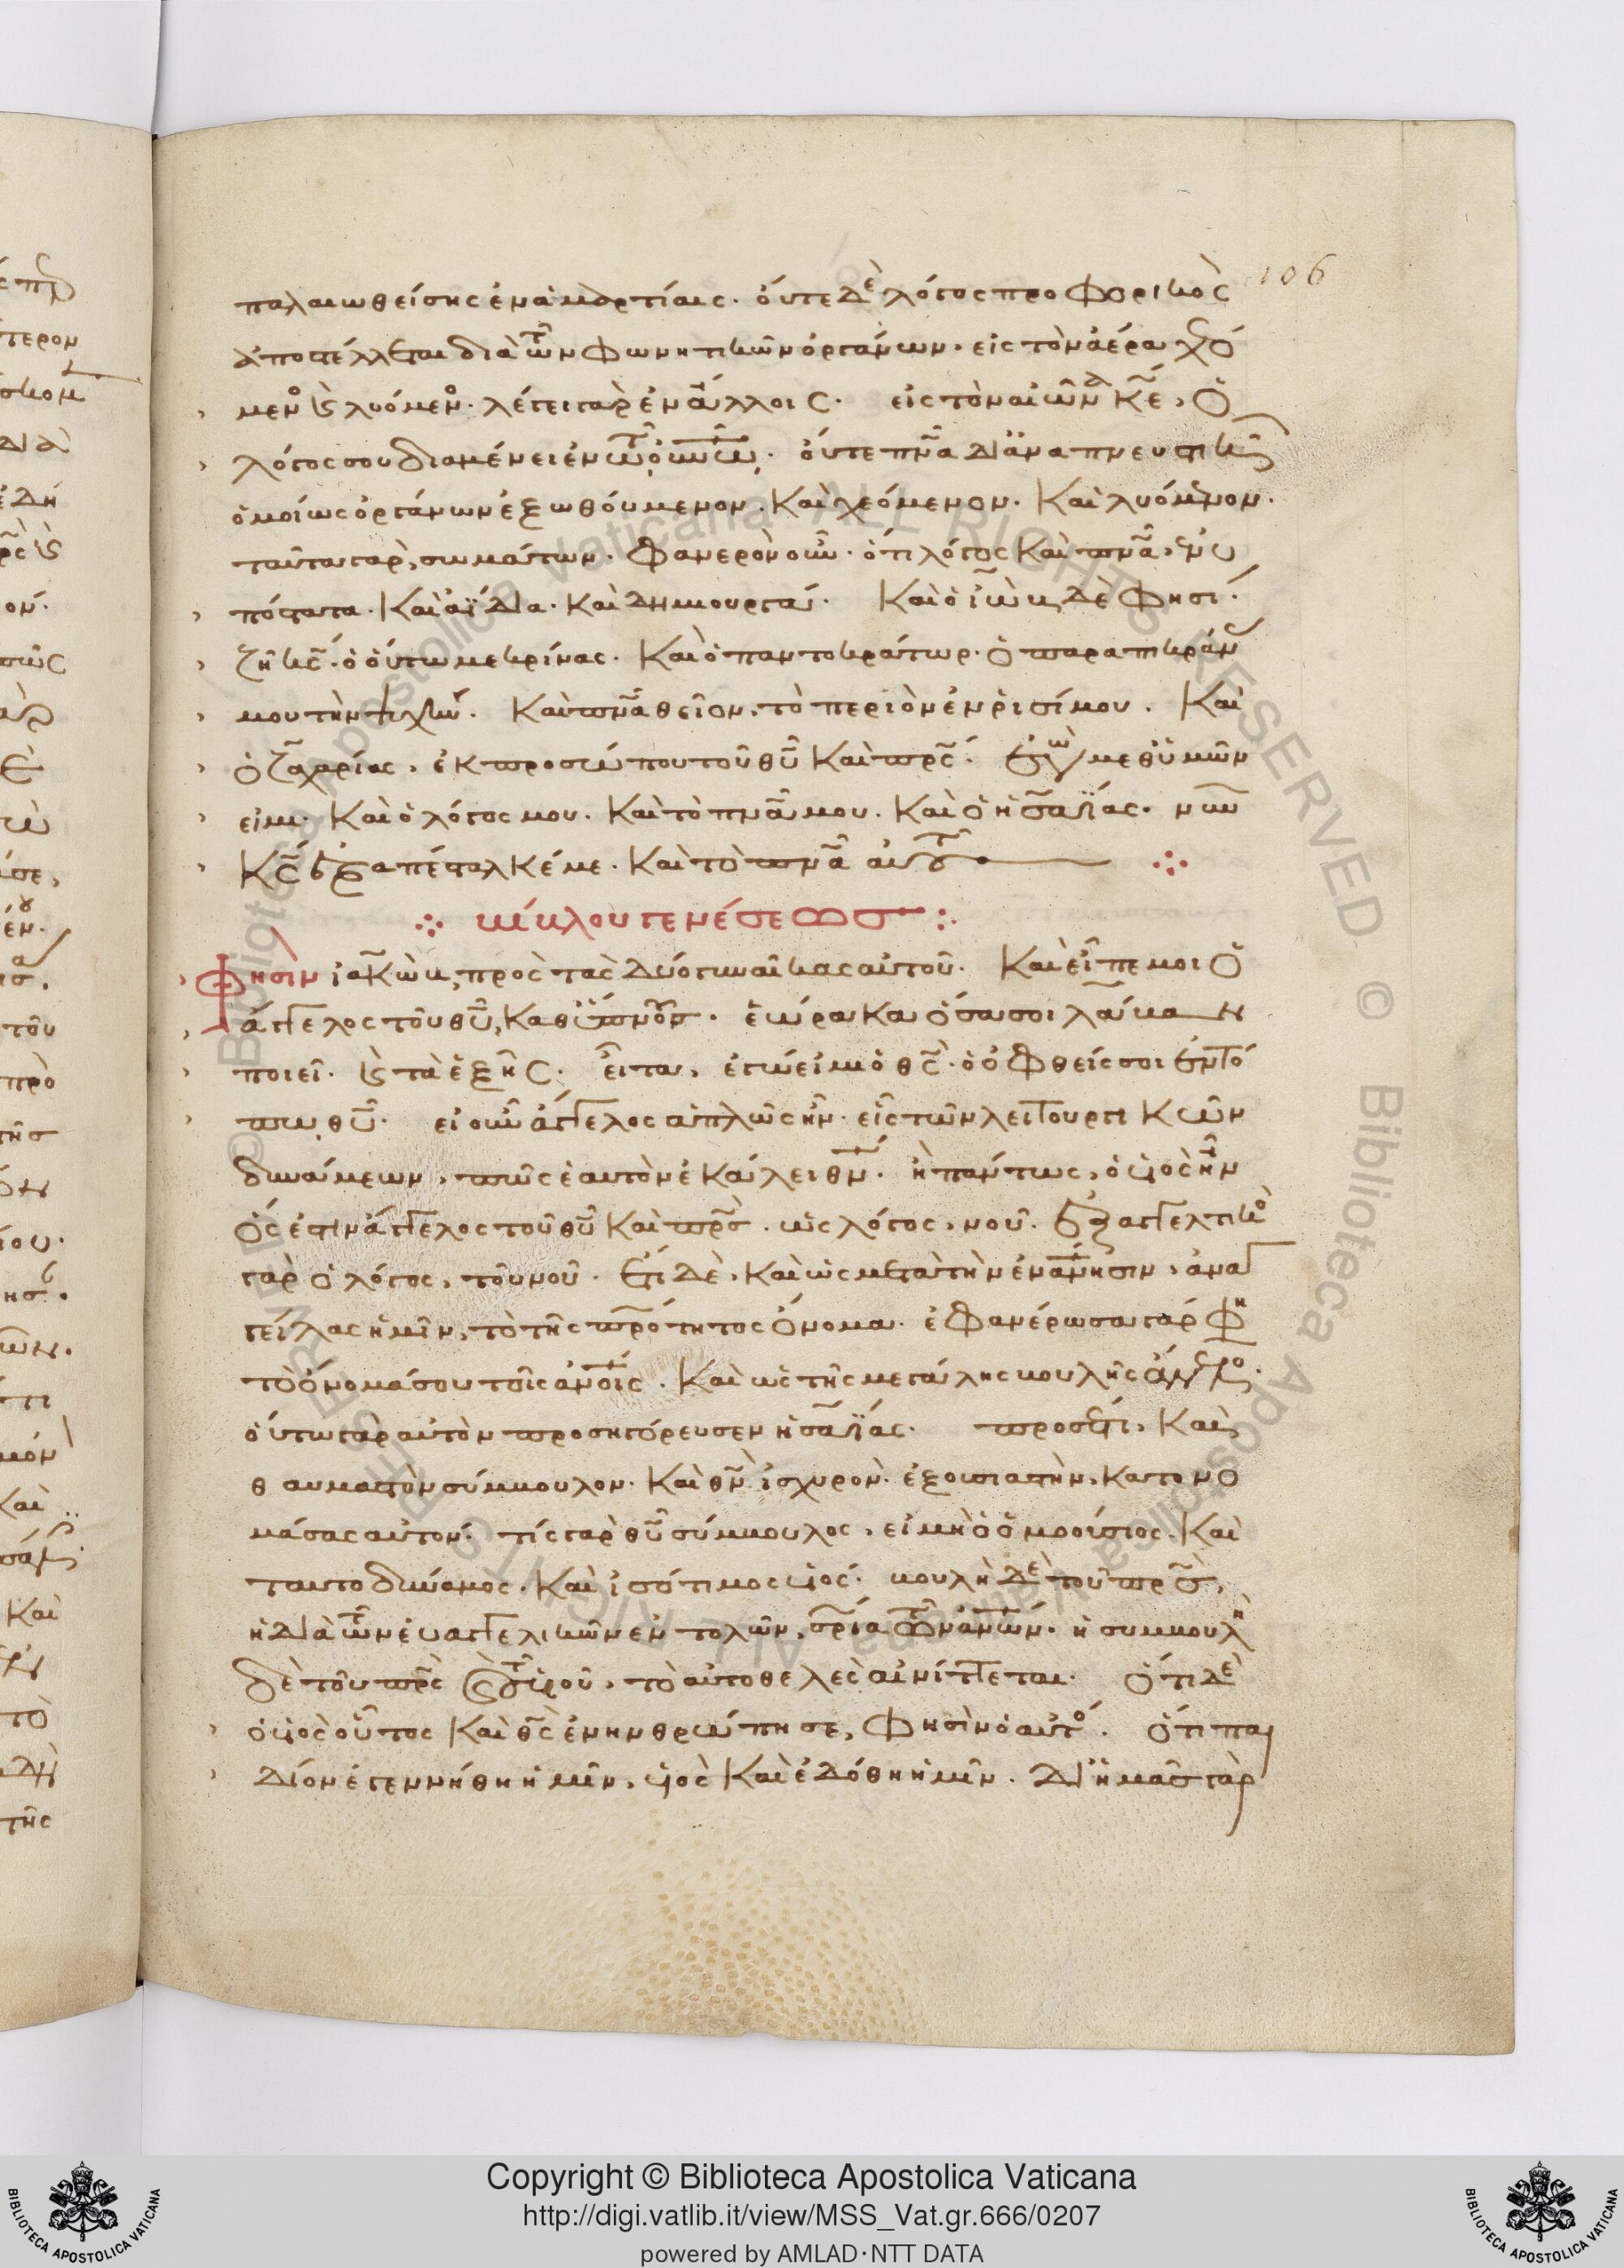 106
παλαιωθείσης ἐν ἁμαρτίαις. οὔτε δὲ λόγος προφορικὸς
ἀποστέλλεται διὰ τῶν φωνητικῶν ὀργάνων. εἰς τὸν ἀέρα χεό
μενος καὶ λυόμενος. λέγει γὰρ ἐν ἄλλοις. εἰς τὸν αἰῶνα κε, ὁ
λόγος σου διαμένει ἐν τῶ οὐνῶ. οὔτε πνα δι' ἀναπνευστικῶν
ὁμοίως ὀργάνων ἐξωθούμενον. καὶ χεόμενον. καὶ λυόμενον.
ταῦτα γὰρ, σωμάτων. φανερὸν οὖν. ὅτι λόγος καὶ πνα, ἐνυ
πόστατα. καὶ ἀΐδια. καὶ δημιουργά. καὶ ὁ ἰὼβ δὲ φησί.
ζῆ κς. ὁ οὕτω με κρίνας. καὶ ὁ παντοκράτωρ. ὁ παραπικράνας
μου τὴν ψυχήν. καὶ πνα θεῖον, τὸ περιὸν ἐν ρισί μου. καὶ
ὁ ζαχαρίας, ἐκ προσώπου τοῦ θυ καὶ πρς. ἐγὼ μεθ' ὑμῶν
εἰμι. καὶ ὁ λόγος μου. καὶ τὸ πνα μου. καὶ ὁ ἡσαΐας. νῦν
κς ἐξαπέσταλκέ με. καὶ τὸ πνα αὐτοῦ
βίβλου γενέσεως
Φησὶν ἰακὼβ, πρὸς τὰς δύο γυναῖκας αὐτοῦ. καὶ εἶπέ μοι ὁ
ἄγγελος τοῦ θυ, καθ' ὕπνους. ἑώρακα ὅσα σοι λάβαν
ποιεῖ. καὶ τὰ ἑξῆς. εἶτα, ἐγώ εἰμι ὁ θς. ὁ ὀφθείς σοι ἐν τό
πω θυ. εἰ οὖν ἄγγελος ἁπλῶς ἦν. εἷς τῶν λειτουργικῶν
δυνάμεων, πῶς ἑαυτὸν ἐκάλει θν. ἢ πάντως, ὁ υἱὸς ἦν
ὅς ἐστιν ἄγγελος τοῦ θυ καὶ πρς. ὡς λόγος, νοῦ. ἐξαγγελτικὸς
γὰρ ὁ λόγος, τοῦ νοῦ. ἔτι δὲ, καὶ ὡς μετὰ τὴν ἐνανησιν, ἀναγ
γείλας ἡμῖν, τὸ τῆς πρότητος ὄνομα. ἐφανέρωσα γάρ φη
τὸ ὄνομά σου τοῖς ανοις. καὶ ὡς τῆς μεγάλης βουλῆς ἄγγελος.
οὕτω γὰρ αὐτὸν προσηγόρευσεν ἡσαΐας. προσέτι, καὶ
θαυμαστὸν σύμβουλον. καὶ θν ἰσχυρὸν. ἐξουσιαστὴν, κατονο
μάσας αὐτόν. τίς γὰρ θυ σύμβουλος, εἰ μὴ ὁ ὁμοούσιος. καὶ
ταυτοδύναμος. καὶ ἰσότιμος υἱός. βουλὴ δὲ τοῦ πρς,
ἡ διὰ τῶν εὐαγγελικῶν ἐντολῶν, σρία τῶν ανων. ἡ συμβουλὴ
δὲ τοῦ πρς καὶ τοῦ υἱοῦ, τὸ αὐτοθελὲς αἰνίττεται. ὅτι δὲ
ὁ υἱὸς οὗτος καὶ θς ἐνηνθρώπησε, φησὶν ὁ αὐτός. ὅτι παι
δίον ἐγεννήθη ἡμῖν, υἱὸς καὶ ἐδόθη ἡμῖν. δι' ἡμᾶς γὰρ
Copyright © Biblioteca Apostolica Vaticana
http://digi.vatlib.it/view/MSS_Vat.gr.666/0207
powered by AMLAD·NTT DATA